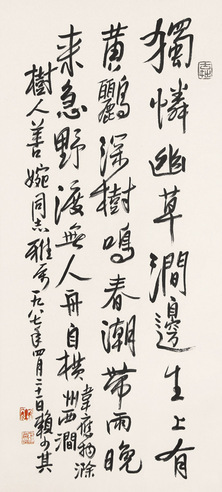 獨憐幽草澗邊生上有
黄鸝深樹鳴春潮帶雨晚
来急野渡無人舟自橫韋應物滁
州西澗
樹人善婉同志雅属一九八七年四月二十二日賴少其